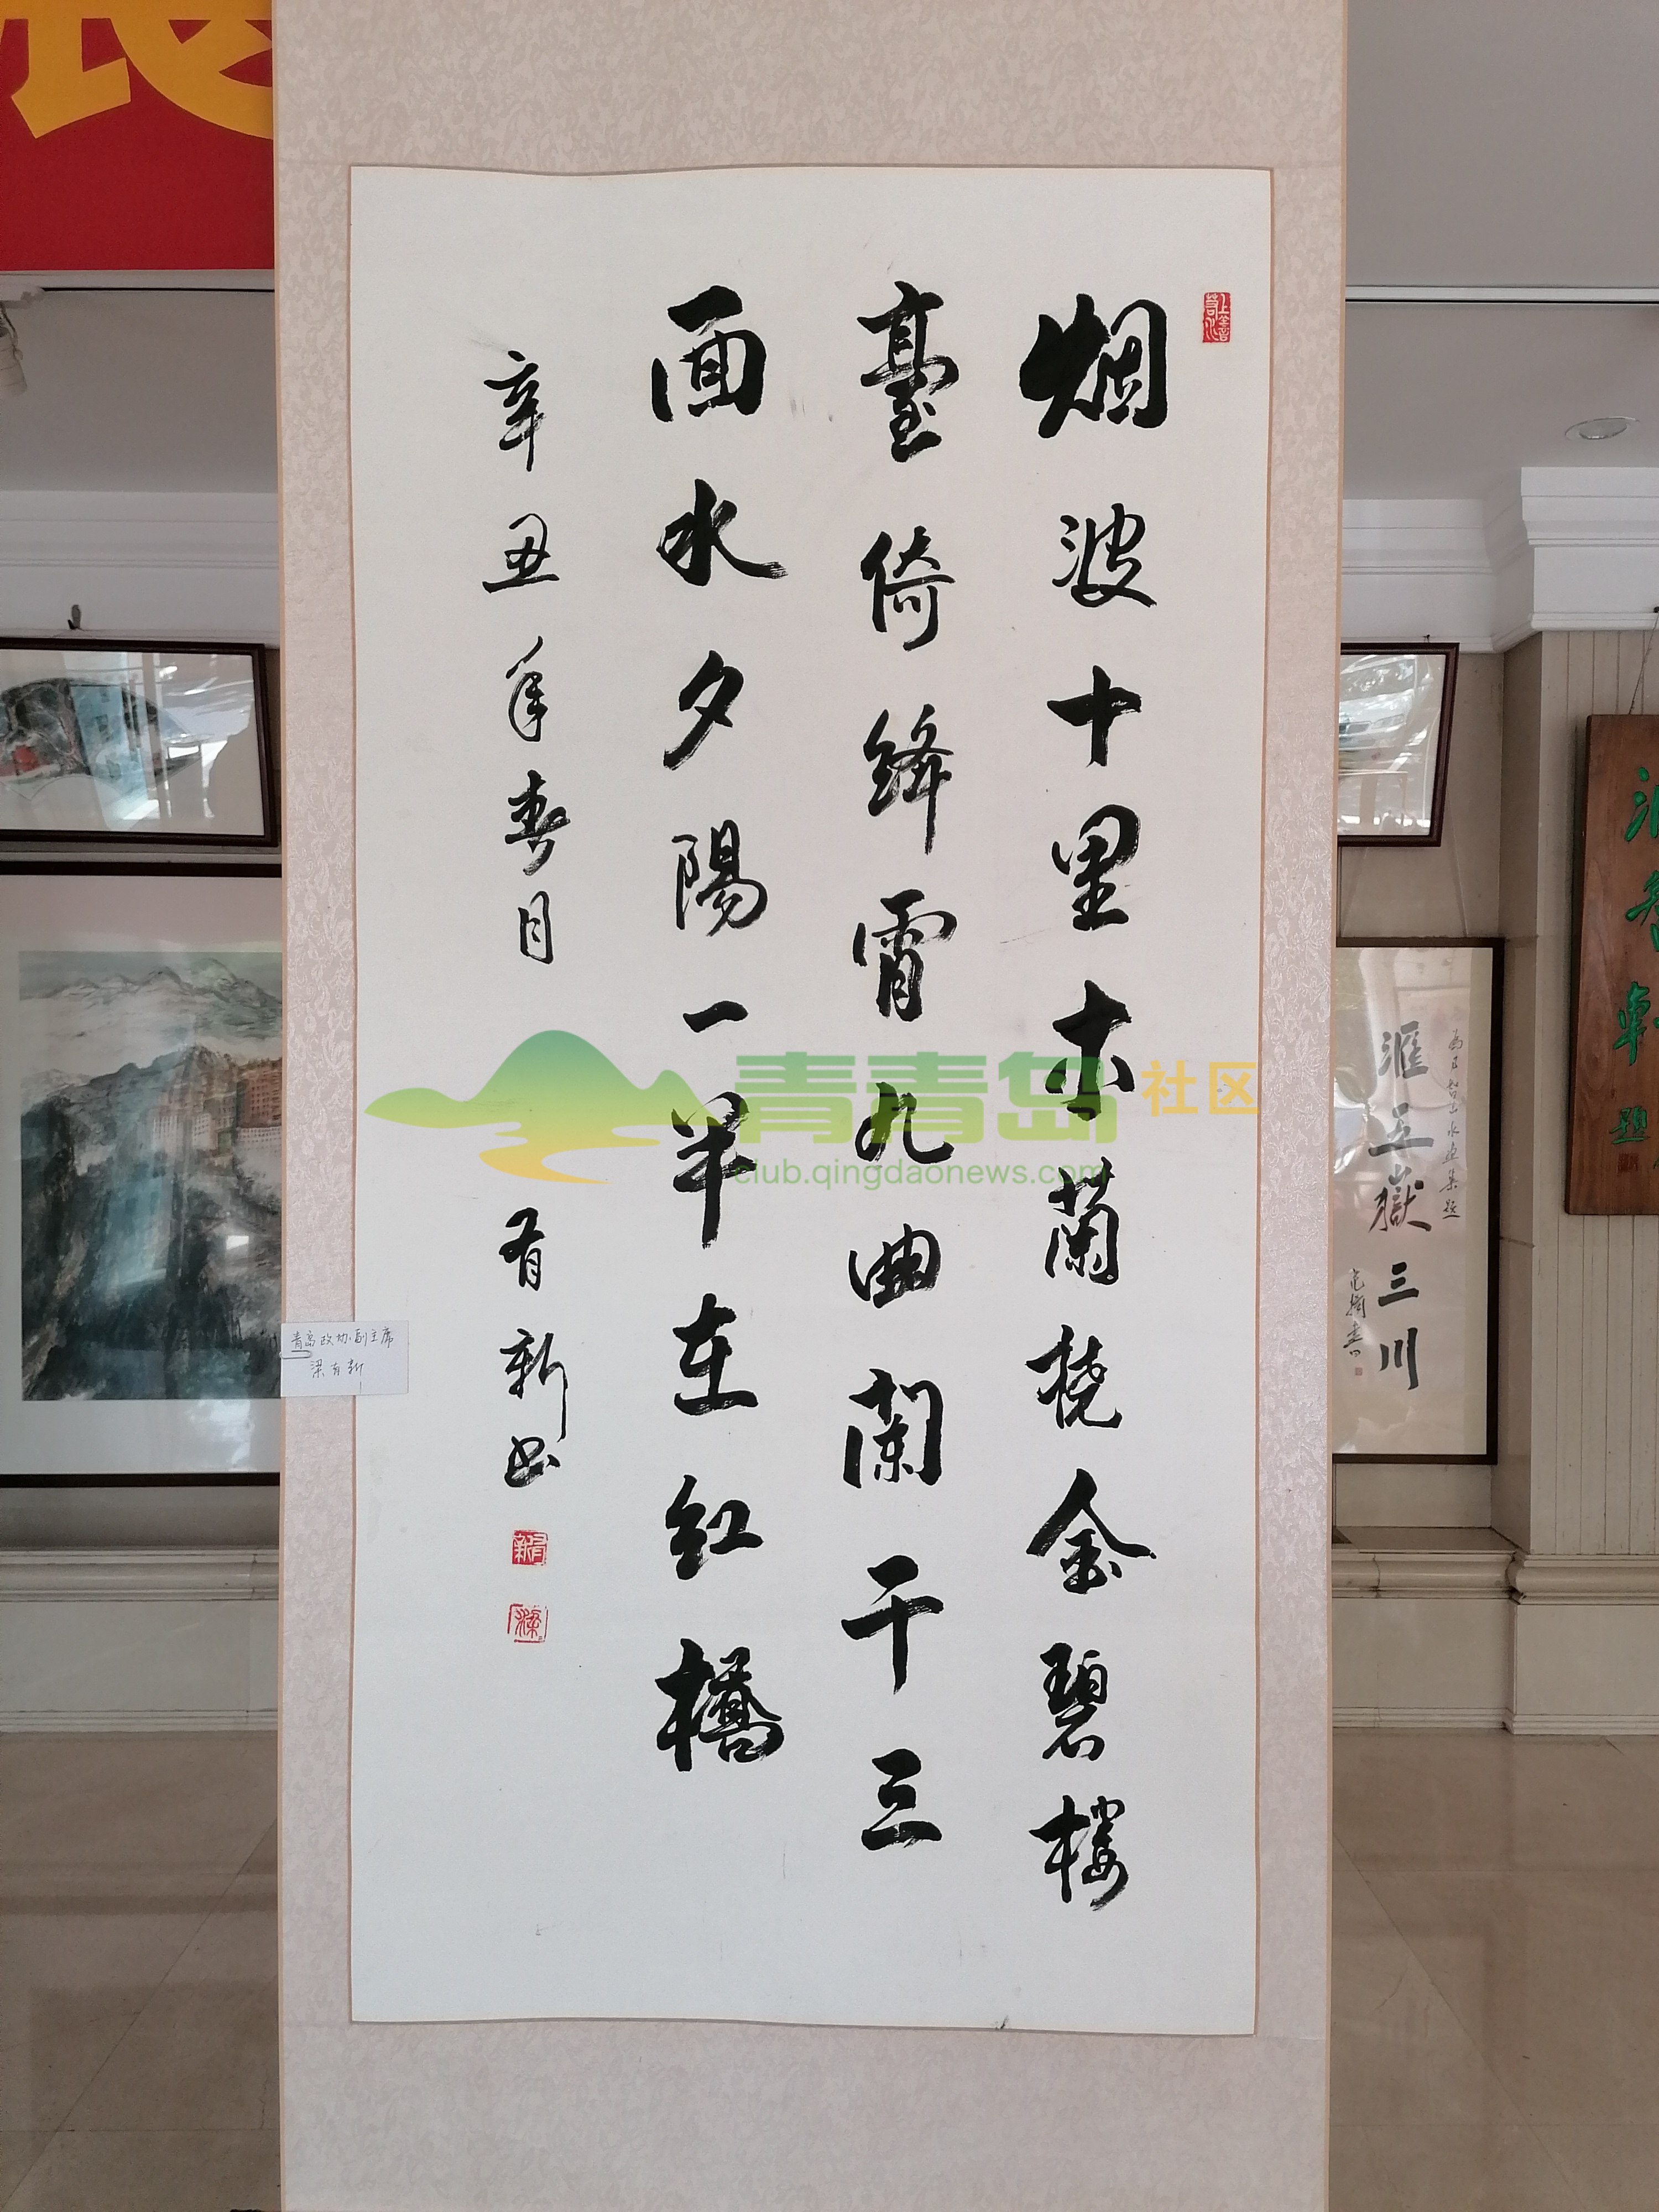 烟波十里木蘭橈金碧樓
臺倚絳霄九曲闌干三
面水夕陽一半在红橋
辛丑年春月 有新书
上善若水
有新
梁
青岛政协副主席
梁有新
青青岛社区
club.qingdaonews.com
滙五嶽三川